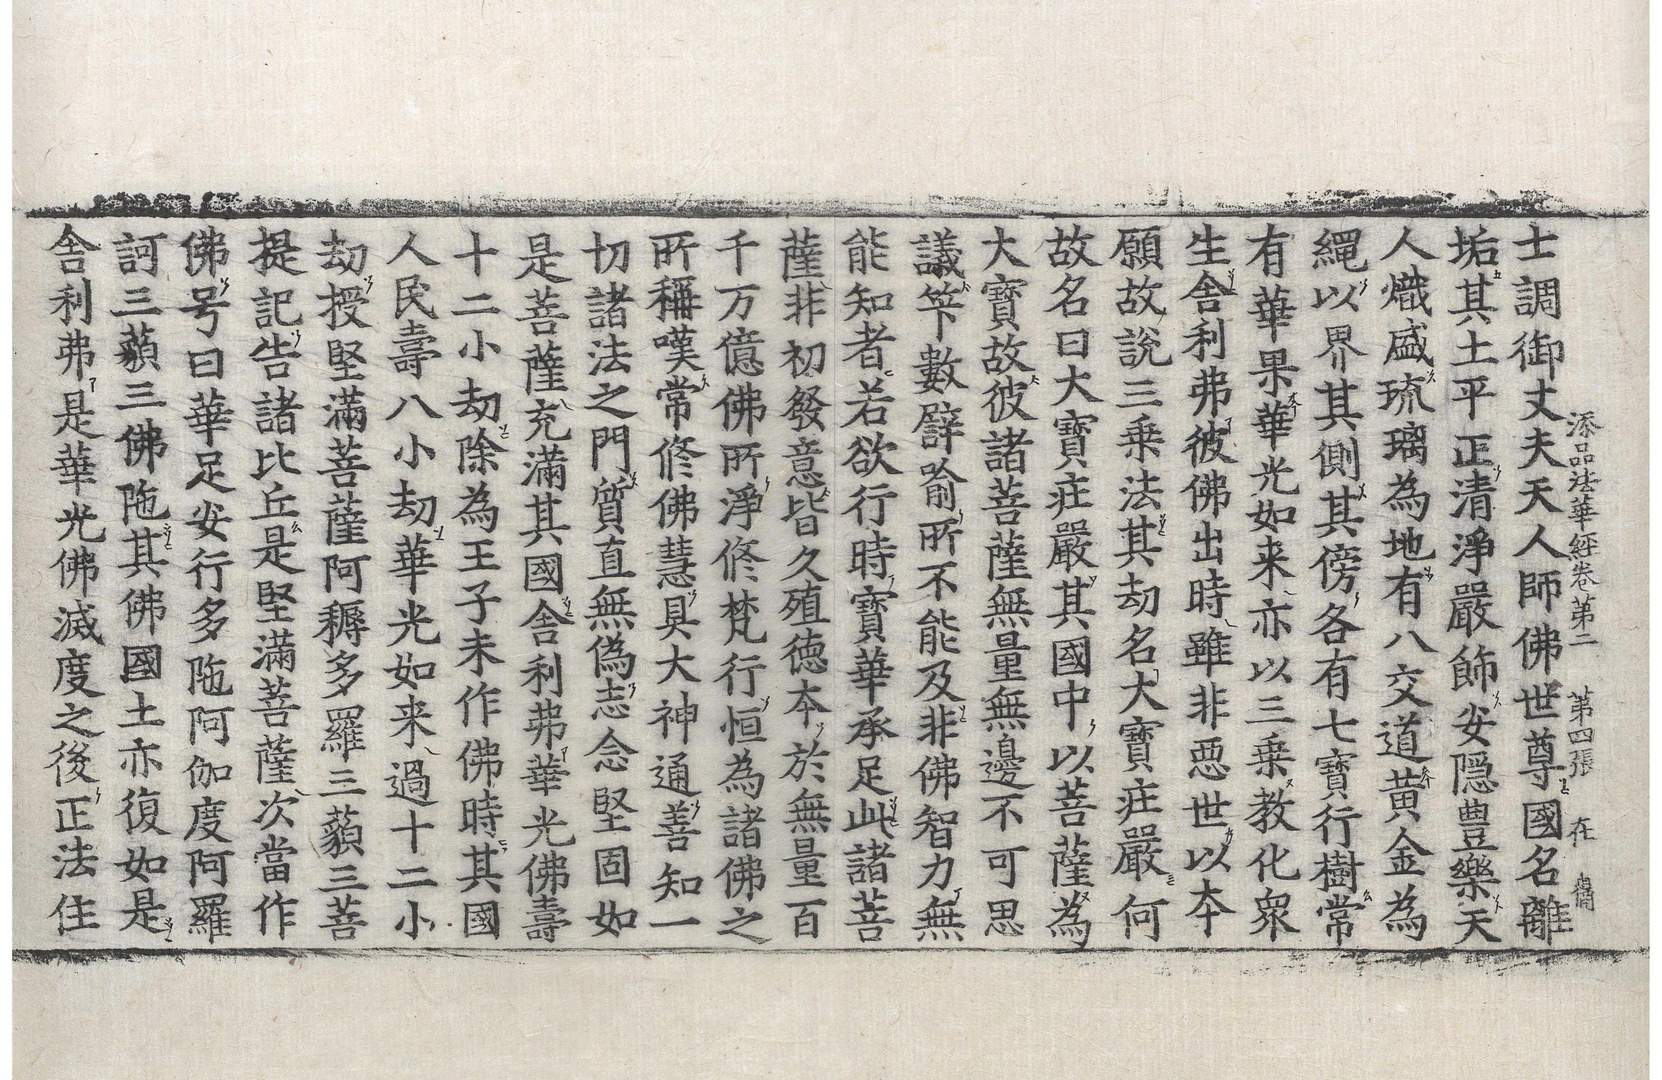 添品法華經卷第二 第四張 在
士調御丈夫天人師佛世尊國名離
垢其土平正清淨嚴飾安隱豊樂天
人熾盛琉璃為地有八交道黄金為
繩以界其側其傍各有七寶行樹常
有華果華光如来亦以三乗教化衆
生舎利弗彼佛出時雖非惡世以本
願故說三乗法其劫名大寶莊嚴何
故名曰大寶莊嚴其國中以菩薩為
大寶故彼諸菩薩無量無邊不可思
議筭數譬喻所不能及非佛智力無
能知者若欲行時寶華承足此諸菩
薩非初發意皆久殖德本於無量百
千万億佛所淨修梵行恒為諸佛之
所稱嘆常修佛慧具大神通善知一
切諸法之門質直無偽志念堅固如
是菩薩充滿其國舎利弗華光佛壽
十二小劫除為王子未作佛時其國
人民壽八小劫華光如来過十二小
劫授堅滿菩薩阿耨多羅三藐三菩
提記告諸比丘是堅滿菩薩次當作
佛号曰華足安行多陁阿伽度阿羅
訶三藐三佛陁其佛國土亦復如是
舎利弗是華光佛滅度之後正法住